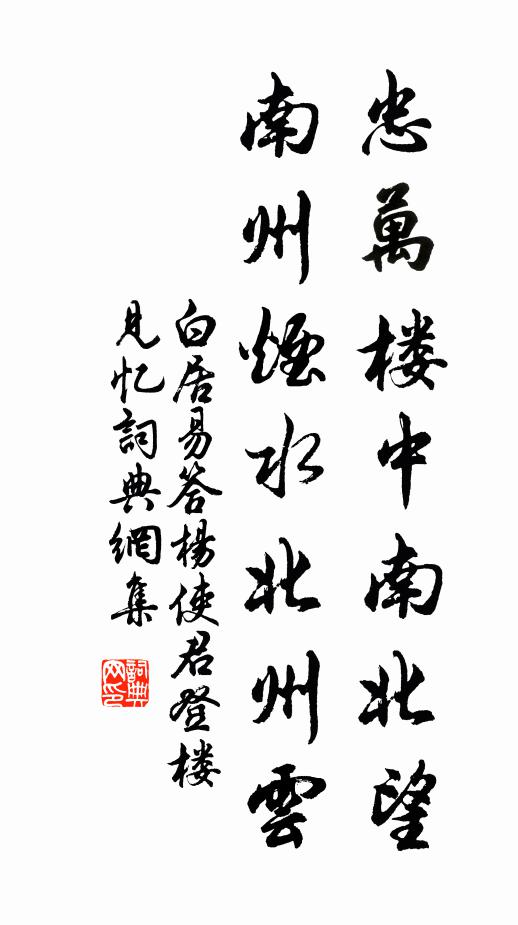 忠萬楼中南北望
南州煙水北州雲
白居易答楊使君登楼
見忆詞典網集
詞典网印